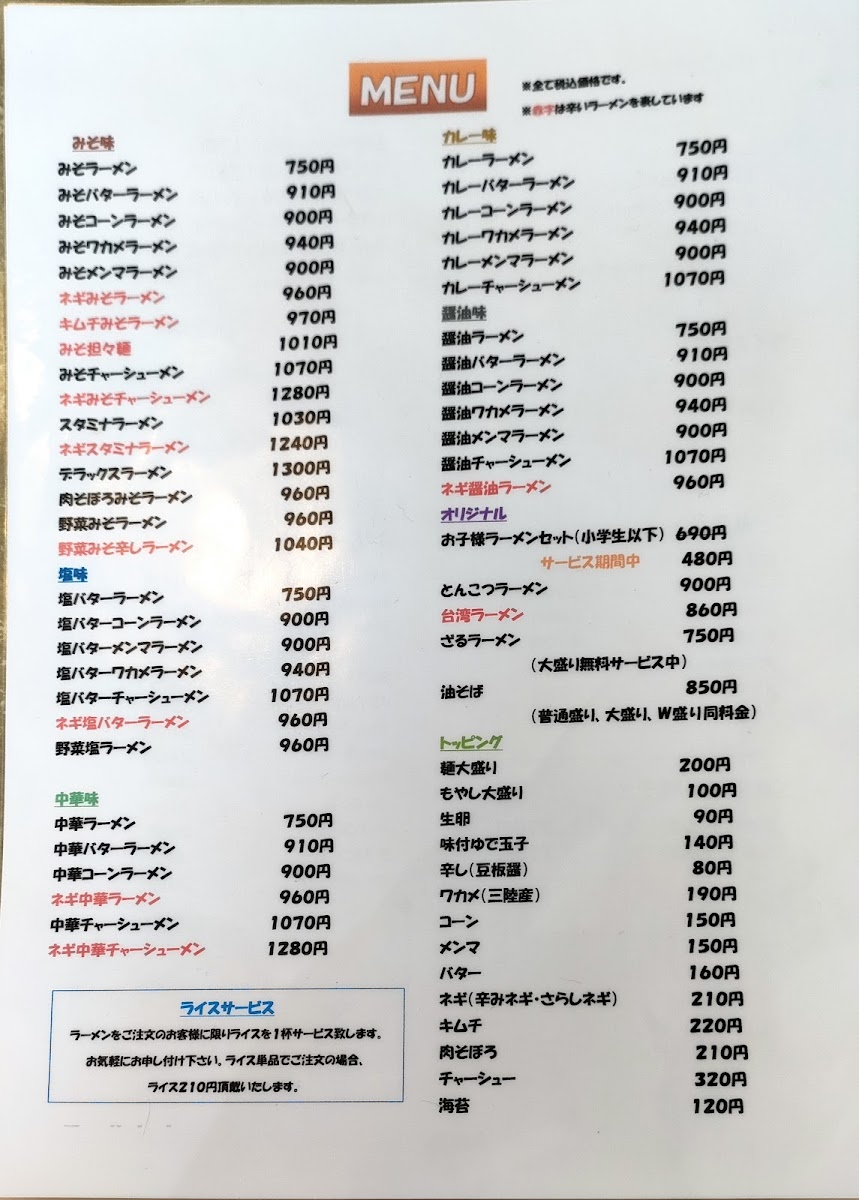 MENU
※全て税込価格です。
※赤字は辛いラーメンを表しています
みそ味
みそラーメン 750円
みそバターラーメン 910円
みそコーンラーメン 900円
みそワカメラーメン 940円
みそメンマラーメン 900円
ネギみそラーメン 960円
キムチみそラーメン 970円
みそ担々麺 1010円
みそチャーシューメン 1070円
ネギみそチャーシューメン 1280円
スタミナラーメン 1030円
ネギスタミナラーメン 1240円
デラックスラーメン 1300円
肉そぼろみそラーメン 960円
野菜みそラーメン 960円
野菜みそ辛しラーメン 1040円
塩味
塩バターラーメン 750円
塩バターコーンラーメン 900円
塩バターメンマラーメン 900円
塩バターワカメラーメン 940円
塩バターチャーシューメン 1070円
ネギ塩バターラーメン 960円
野菜塩ラーメン 960円
中華味
中華ラーメン 750円
中華バターラーメン 910円
中華コーンラーメン 900円
ネギ中華ラーメン 960円
中華チャーシューメン 1070円
ネギ中華チャーシューメン 1280円
ライスサービス
ラーメンをご注文のお客様に限りライスを1杯サービス致します。
お気軽にお申し付け下さい。ライス単品でご注文の場合、
ライス210円頂戴いたします。
カレー味
カレーラーメン 750円
カレーバターラーメン 910円
カレーコーンラーメン 900円
カレーワカメラーメン 940円
カレーメンマラーメン 900円
カレーチャーシューメン 1070円
醤油味
醤油ラーメン 750円
醤油バターラーメン 910円
醤油コーンラーメン 900円
醤油ワカメラーメン 940円
醤油メンマラーメン 900円
醤油チャーシューメン 1070円
ネギ醤油ラーメン 960円
オリジナル
お子様ラーメンセット(小学生以下) 690円
サービス期間中 480円
とんこつラーメン 900円
台湾ラーメン 860円
ざるラーメン 750円
(大盛り無料サービス中)
油そば 850円
(普通盛り、大盛り、W盛り同料金)
トッピング
麺大盛り 200円
もやし大盛り 100円
生卵 90円
味付ゆで玉子 140円
辛し(豆板醤) 80円
ワカメ(三陸産) 190円
コーン 150円
メンマ 150円
バター 160円
ネギ(辛みネギ・さらしネギ) 210円
キムチ 220円
肉そぼろ 210円
チャーシュー 320円
海苔 120円